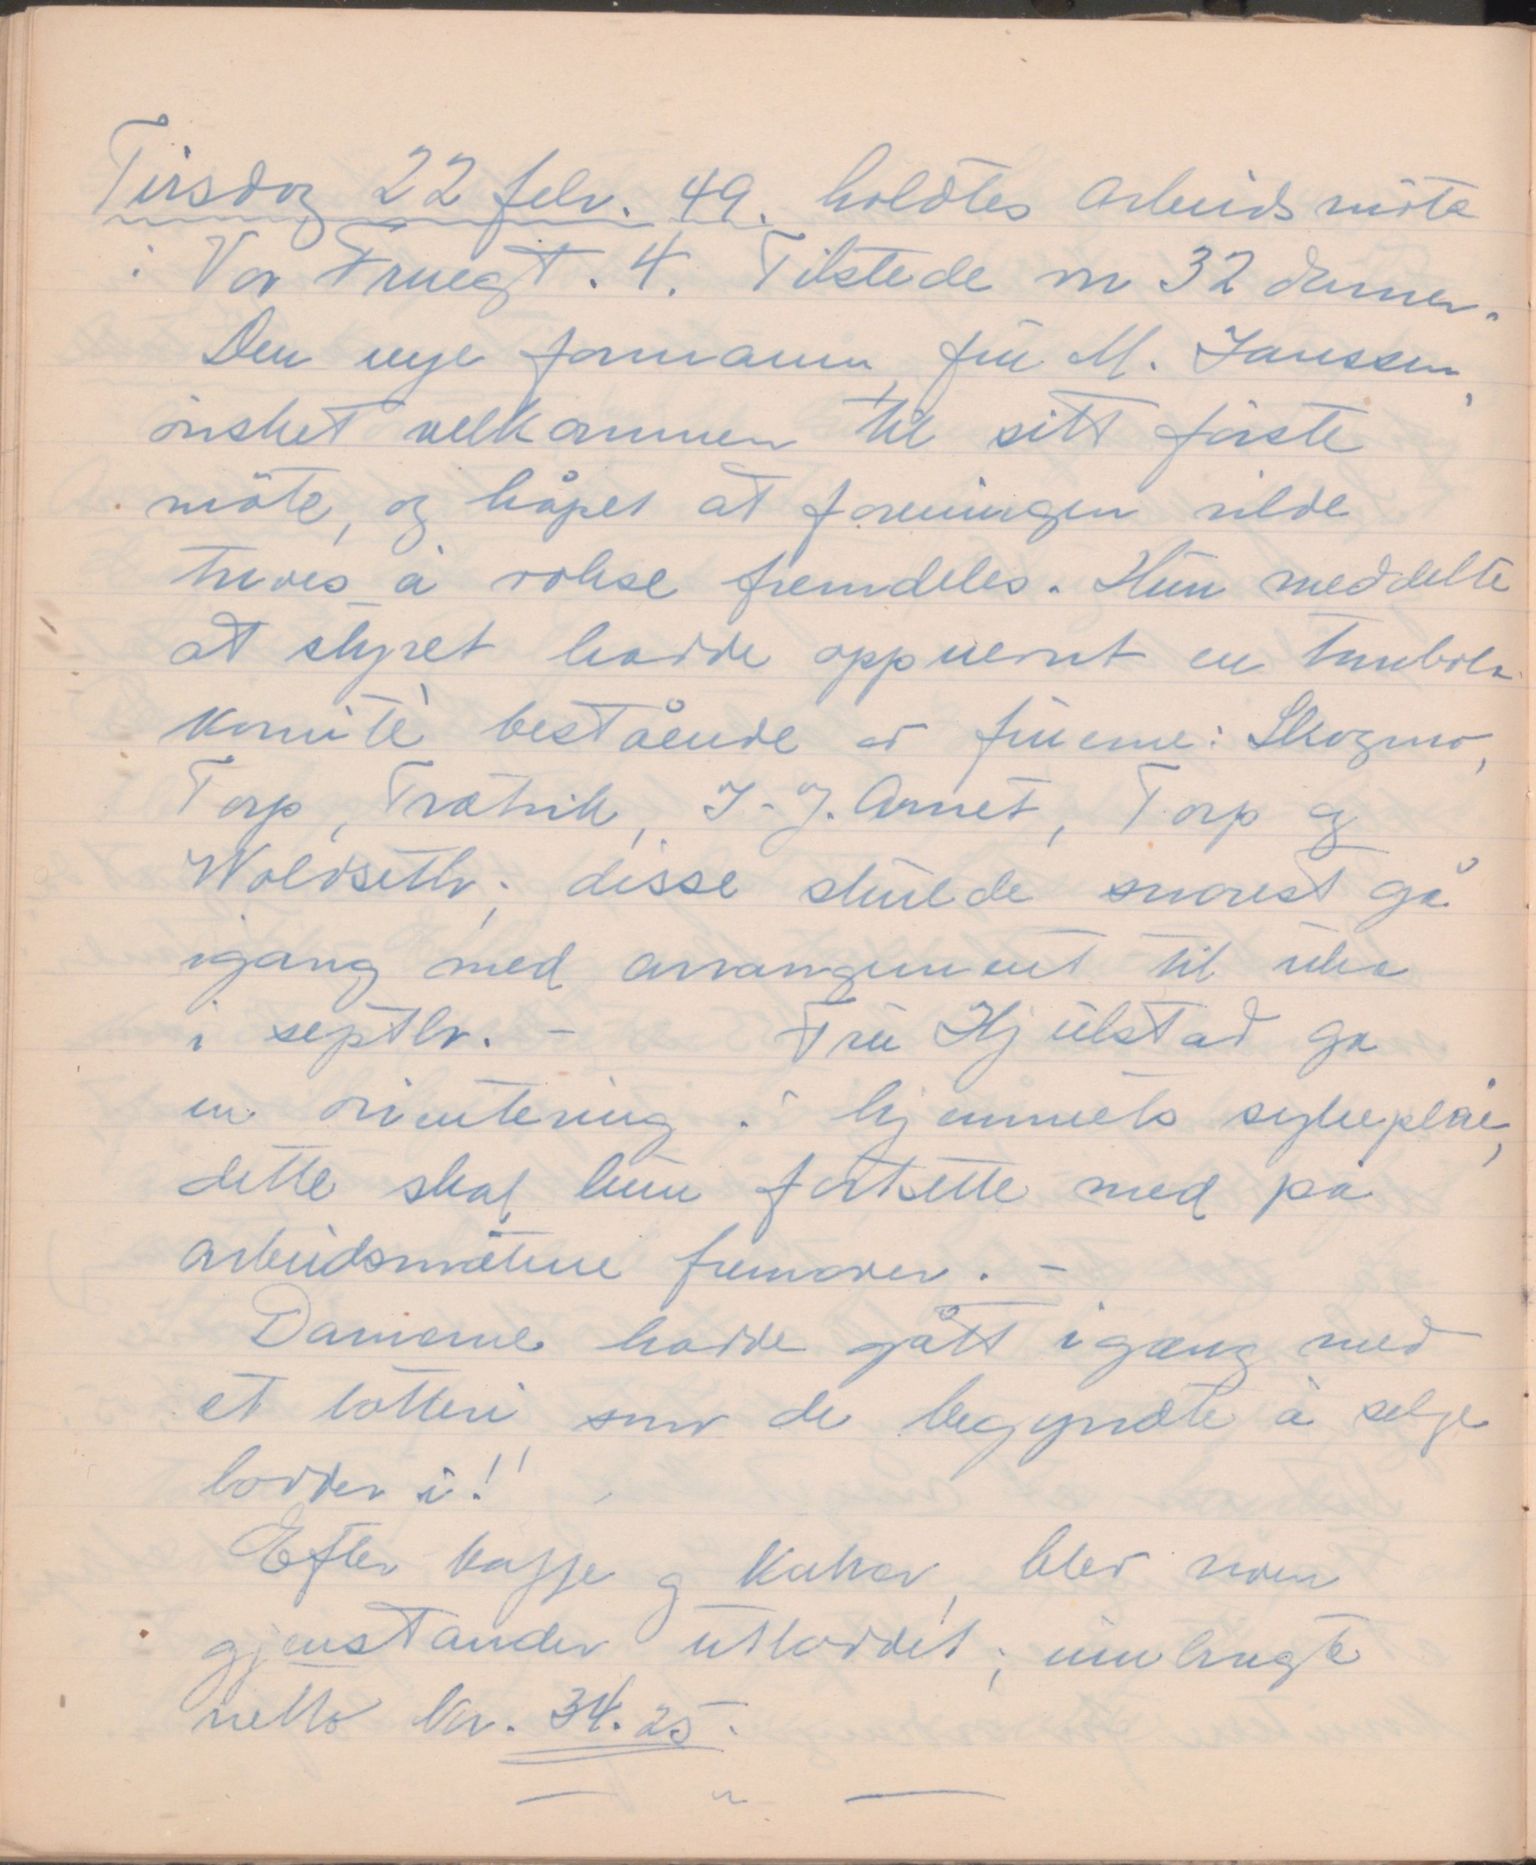 Tirsdag 22 febr. 49. holdtes arbeidsmöte
i Vor Fruegt. 4. Tilstede var 32 damer.
Den nye formann, fru M. Janssen,
önsket velkommen til sitt förste
möte, og håpet at foreningen vilde
trives å vokse fremdeles. Hun meddelte
at styret hadde oppnevnt en tombola
komitè bestående av fruene: Skogmo,
Torp, Trætvik, J. J. Arnet, Torp og
Woldseth; disse skulde snarest gå
igang med arrangement til uka
i septbr. – Fru Hjulstad ga
en orientering i hjemmets sykepleie,
dette skal hun fortsette med på
arbeidsmötene fremover. –
Damerne hadde gått igang med
et lotteri som de begyndte å selge
lodder i!!
Efter kaffe og kaker, blev noen
gjenstander utloddet; innbragte
netto kr. 34.25.
— " —